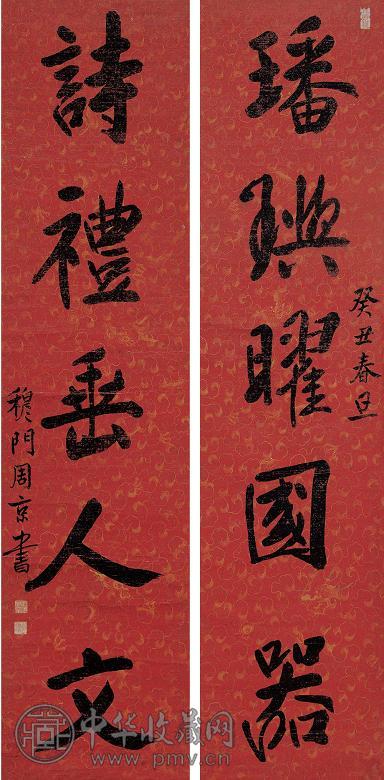 璠璵曜國器
癸丑春旦
詩禮垂人文
穆門周京書
中华收藏网
www.pmv.cn